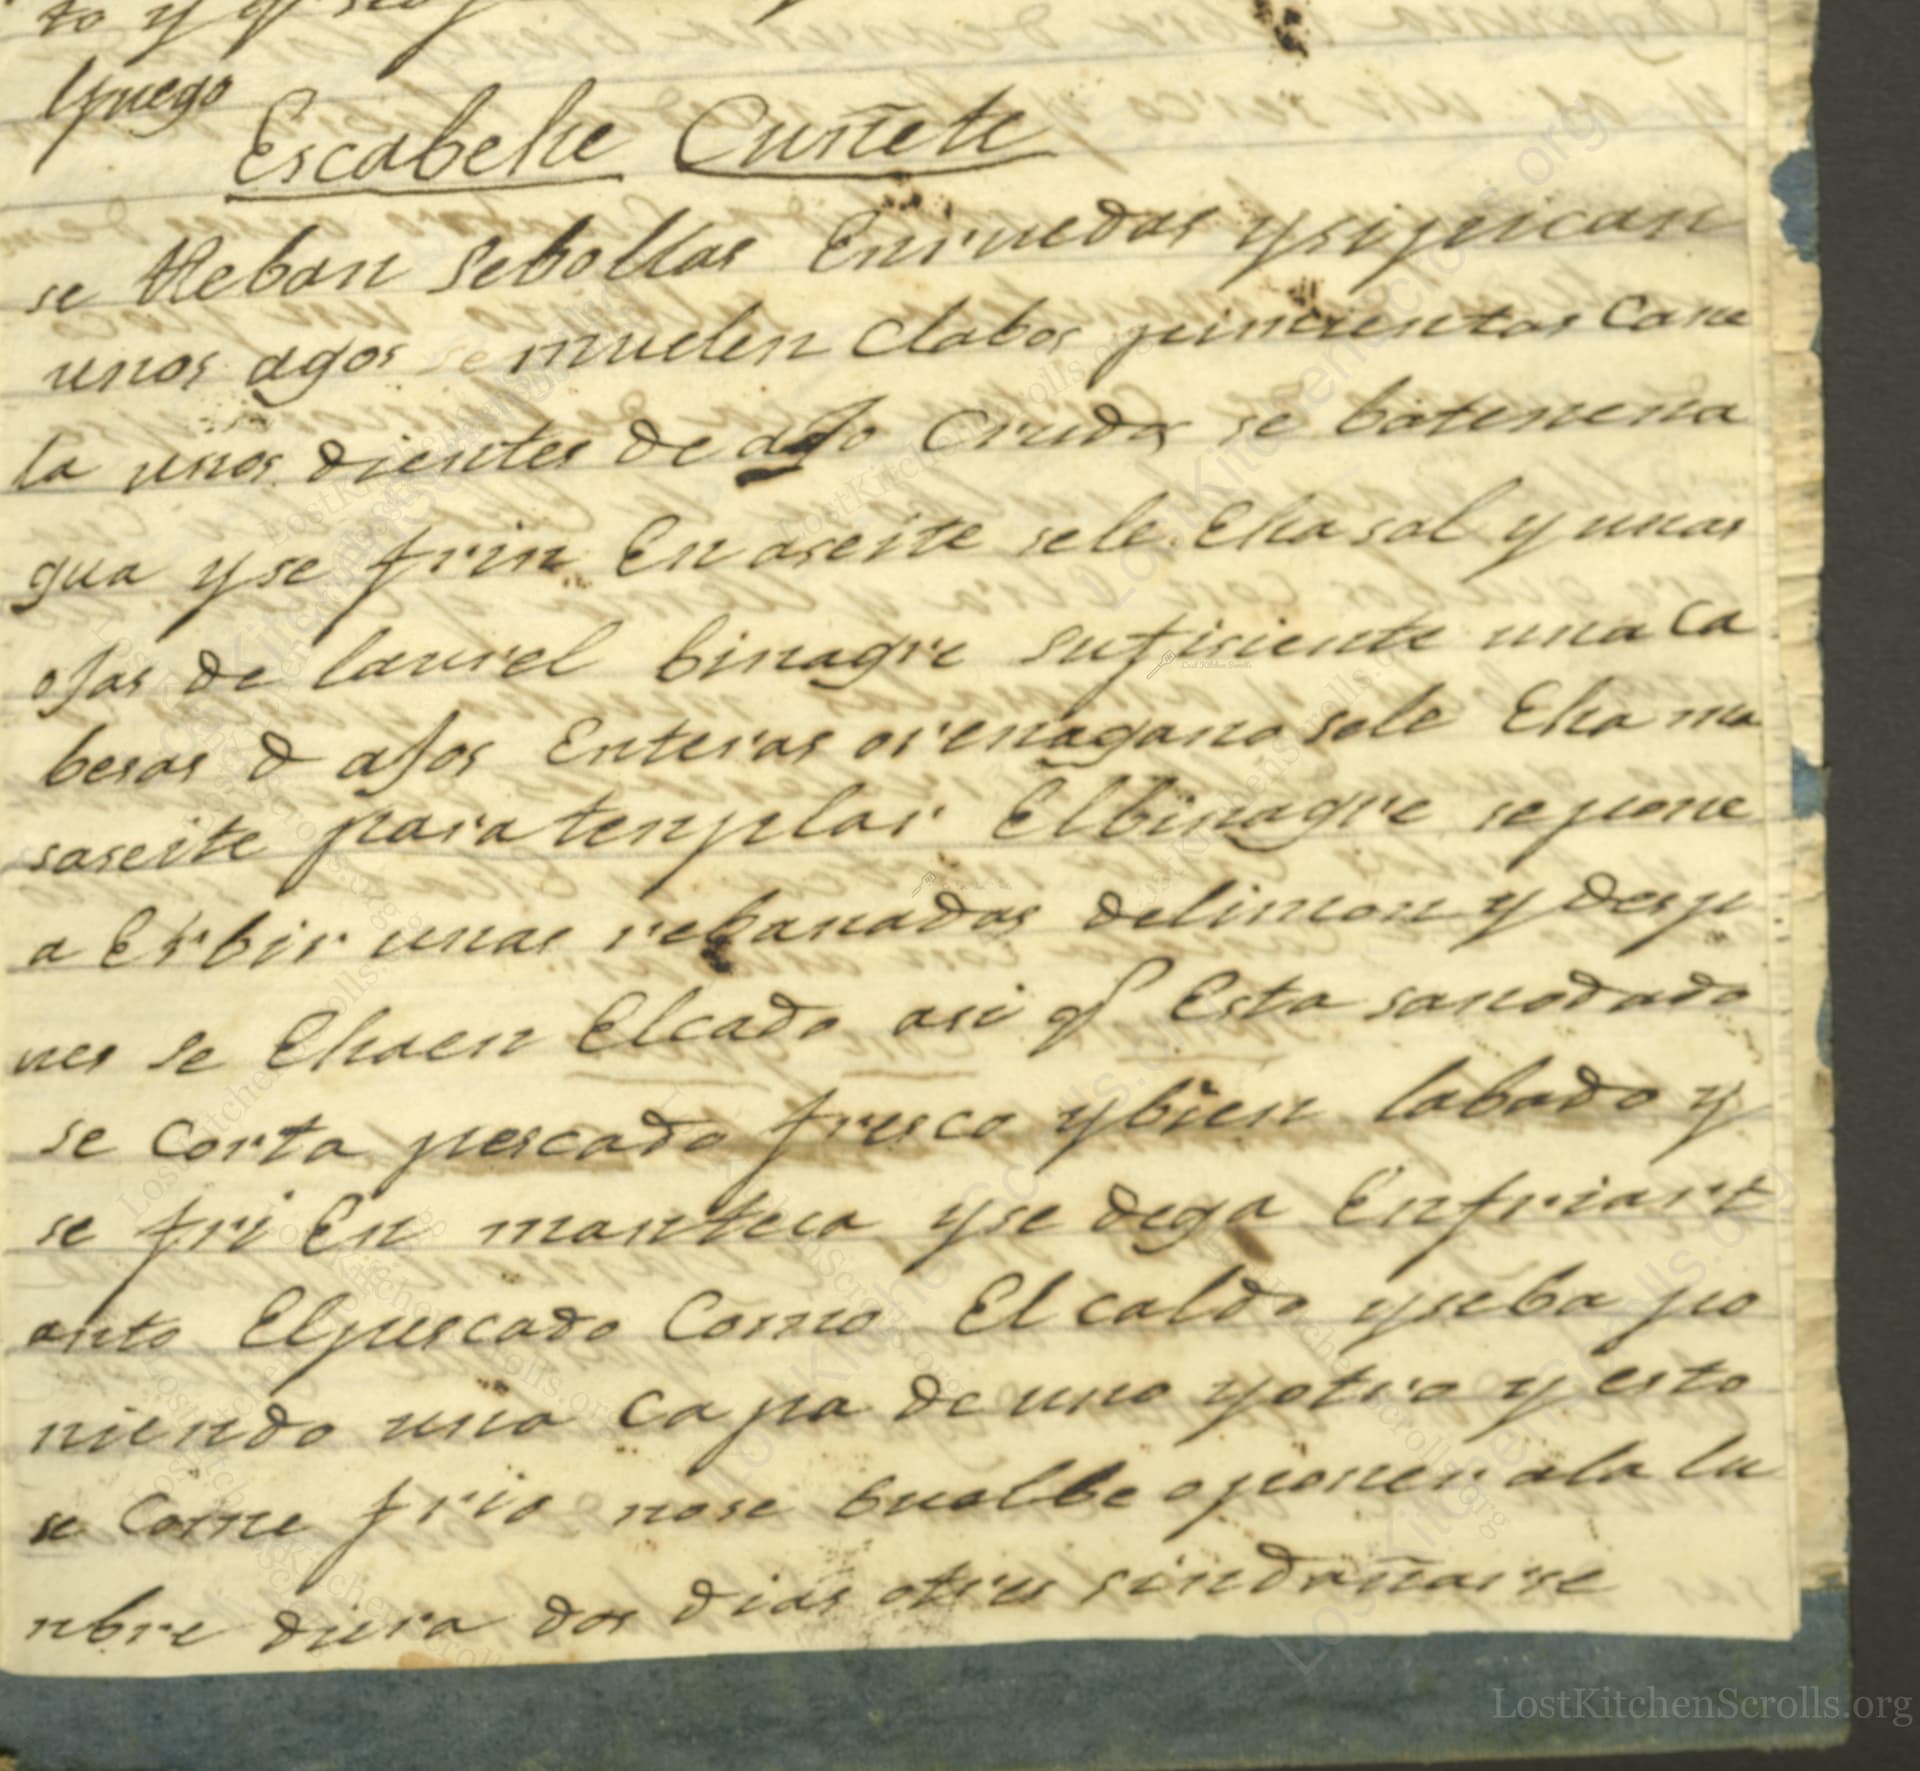 to y
fuego
Escabehe Cuñete
se Reban Sebollas Enruedas ysipican
unos agos se muelen Clabos pimientas Cane
la unos dientes de ajo Crudos se baten
gua yse frin En aseite sele Eha sal y unas
ojas de laurel binagre sufisiente una Ca
besas d ajos Enteras orenagano sele Eha ma
saseite para templar Elbinagre sepone
a Erbir unas rebanadas delimon y desp
ues se Ehaen Elcado asi q Esta sanodado
se Corta pescado fresco ybien labado y
se fri En manteca yse dega Enfriar t
anto Elpescado Como El caldo yseba po
niendo una capa de uno yotro y esto
se Come frio nose buelbe aponer ala lu
nbre dura dos dias otres sindañarse
LostKitchenScrolls.org